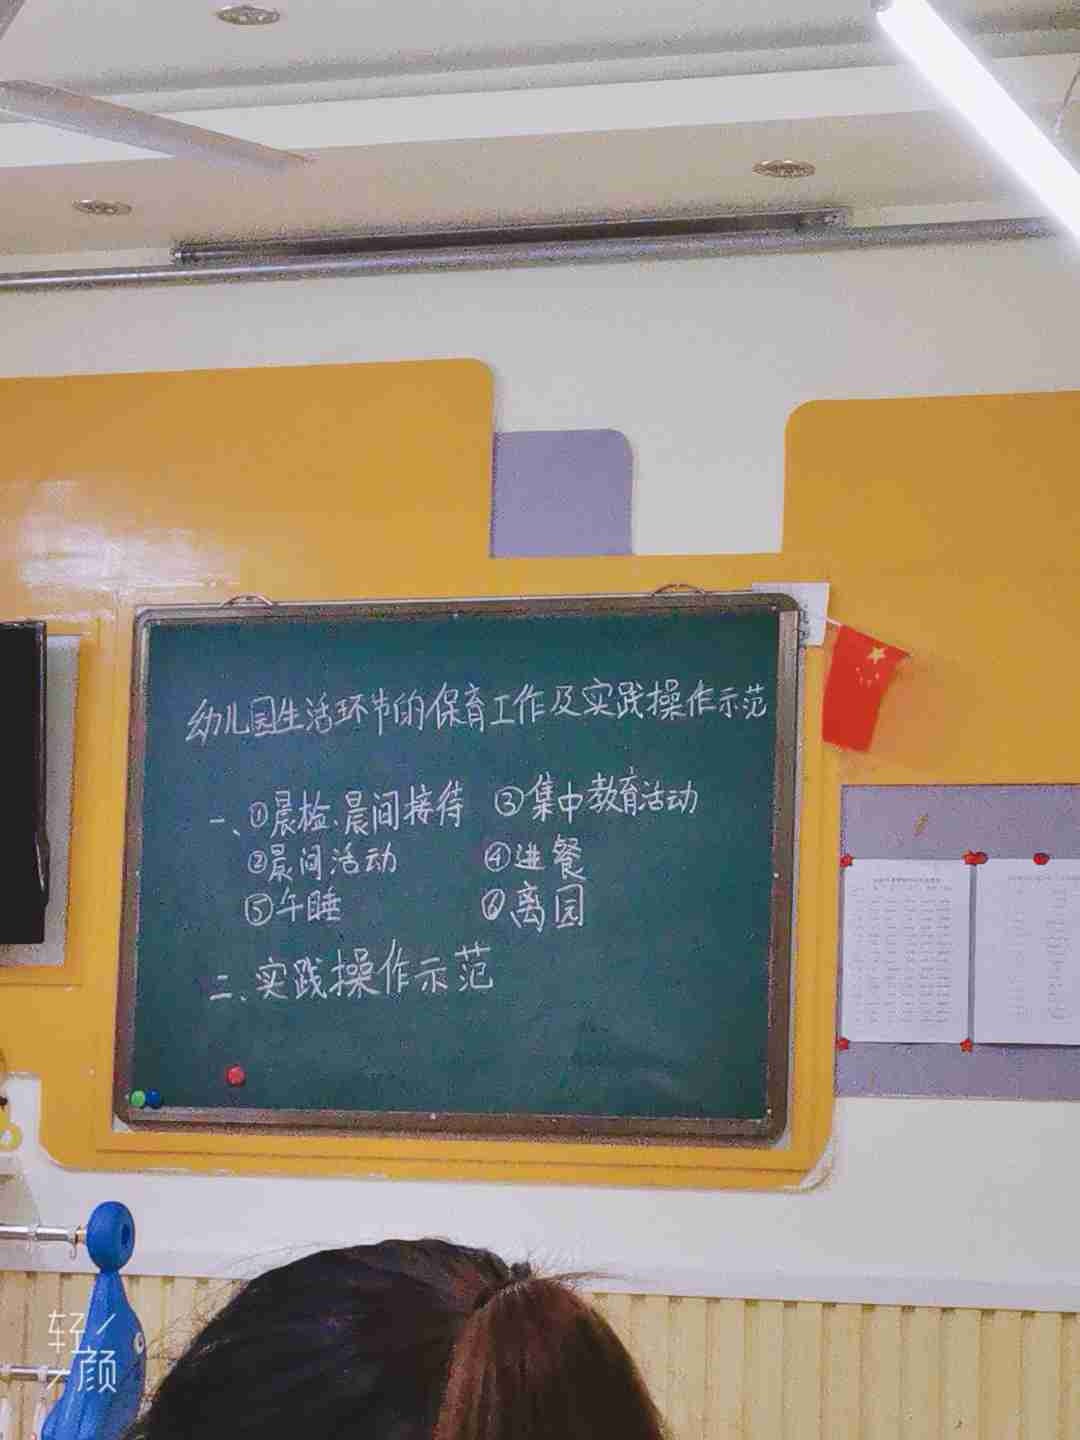 幼儿园生活环节的保育工作及实践操作示范
一、①晨检、晨间接待 ③集中教育活动
②晨间活动 ④进餐
⑤午睡 ⑥离园
二、实践操作示范
轻颜